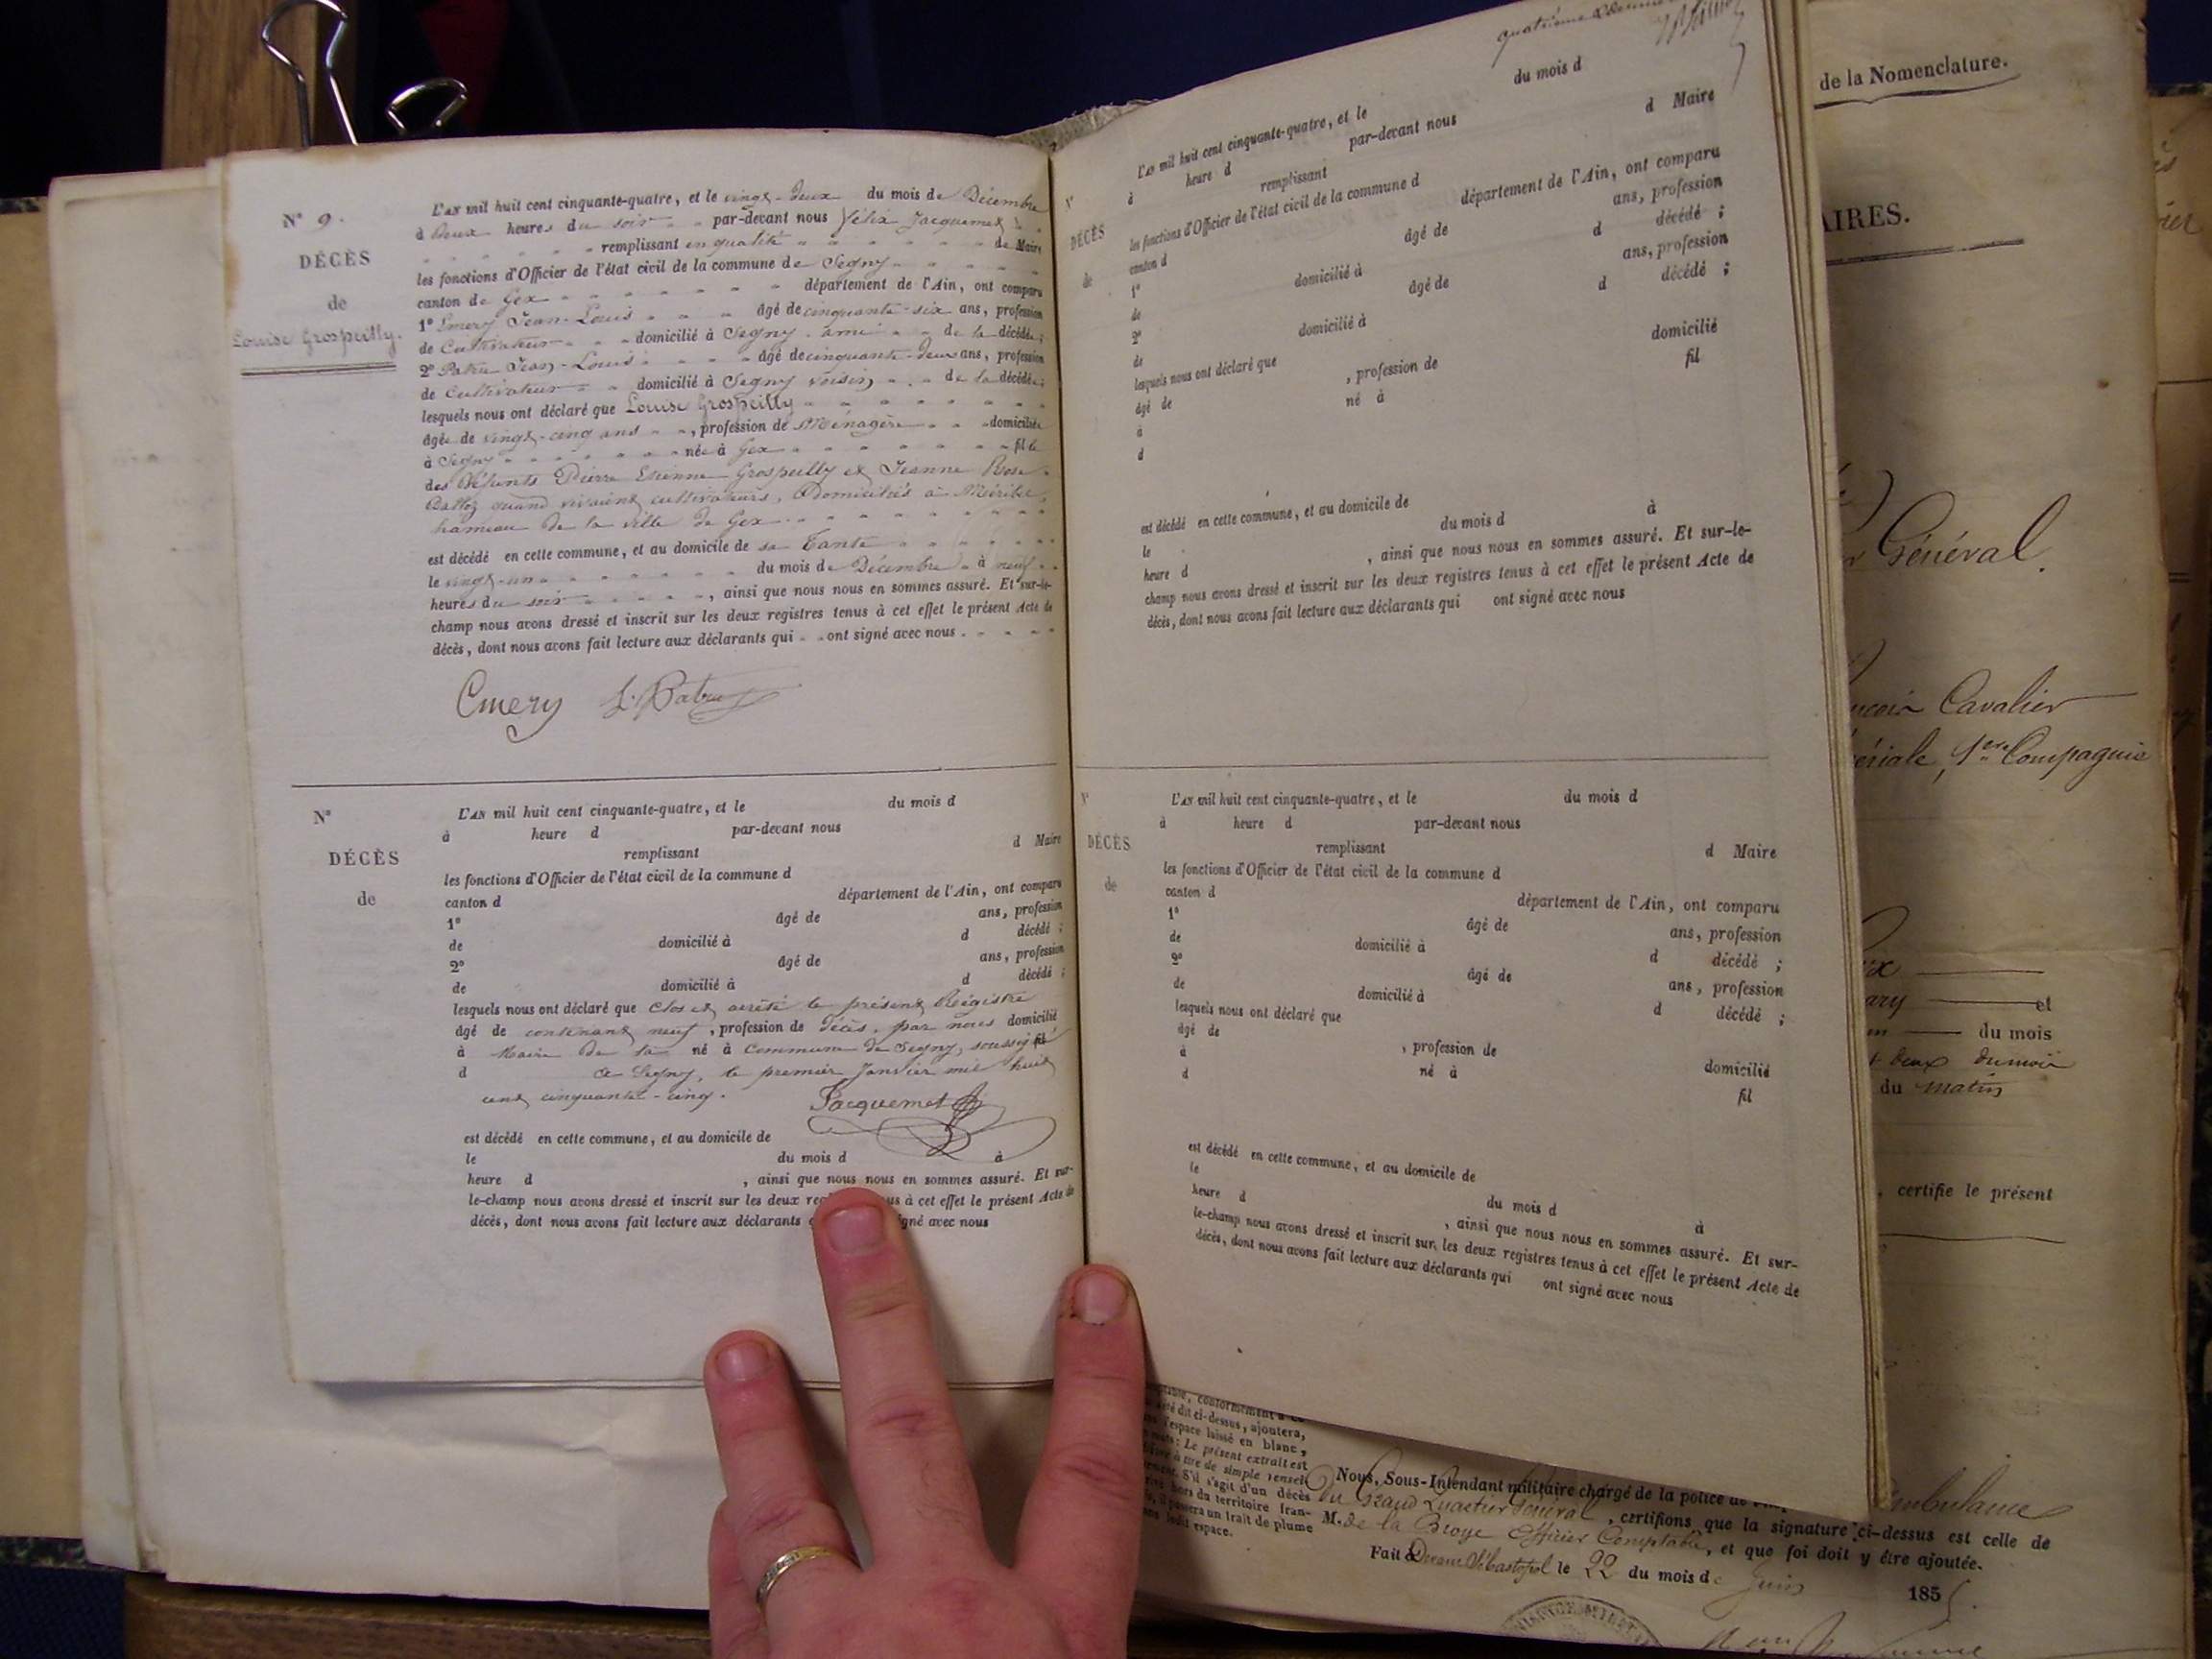 N° 9.
DÉCÈS
de
Louise Grospeilly.
L'AN mil huit cent cinquante-quatre, et le vingt-deux du mois de Décembre
à deux heures du soir par-devant nous Félix Jacquemet
remplissant en qualité de Maire
les fonctions d'Officier de l'état civil de la commune de Segny
canton de Gex département de l'Ain, ont comparu
1° Emery Jean-Louis âgé de cinquante-six ans, profession
de Cultivateur domicilié à Segny ami de la décédée;
2° Patru Jean-Louis âgé de cinquante-deux ans, profession
de Cultivateur domicilié à Segny voisin de la décédée;
lesquels nous ont déclaré que Louise Grospeilly
âgée de vingt-cinq ans, profession de Ménagère domiciliée
à Segny née à Gex fille
des défunts Pierre Etienne Grospeilly et Jeanne Rose
quand vivaient cultivateurs, domiciliés à
hameau de la ville de Gex
est décédé en cette commune, et au domicile de sa tante
le vingt-un du mois de Décembre à neuf
heures du soir, ainsi que nous nous en sommes assuré. Et sur-le-
champ nous avons dressé et inscrit sur les deux registres tenus à cet effet le présent Acte de
décès, dont nous avons fait lecture aux déclarants qui ont signé avec nous.
Emery L. Patru
N°
DÉCÈS
de
L'AN mil huit cent cinquante-quatre, et le du mois d
à heure d par-devant nous
remplissant d Maire
les fonctions d'Officier de l'état civil de la commune d
canton d département de l'Ain, ont comparu
1° âgé de ans, profession
de domicilié à d décédé;
2° âgé de ans, profession
de domicilié à d décédé;
lesquels nous ont déclaré que Clos et arrêté le présent Régistre
âgé de contenant neuf, profession de décès, par nous domicilié
à Maire de la né à commune de Segny, soussigné fil
d à Segny, le premier Janvier mil huit
cent cinquante-cinq.
Jacquemet
est décédé en cette commune, et au domicile de
le du mois d à
heure d , ainsi que nous nous en sommes assuré. Et sur-
le-champ nous avons dressé et inscrit sur les deux à cet effet le présent Acte de
décès, dont nous avons fait lecture aux déclarants signé avec nous
quatrième
N°
DÉCÈS
de
L'AN mil huit cent cinquante-quatre, et le du mois d
à heure d par-devant nous
remplissant d Maire
les fonctions d'Officier de l'état civil de la commune d
canton d département de l'Ain, ont comparu
1° âgé de ans, profession
de domicilié à d décédé;
2° âgé de ans, profession
de domicilié à d décédé;
lesquels nous ont déclaré que
âgé de , profession de domicilié
à né à fil
d
est décédé en cette commune, et au domicile de
le du mois d à
heure d , ainsi que nous nous en sommes assuré. Et sur-le-
champ nous avons dressé et inscrit sur les deux registres tenus à cet effet le présent Acte de
décès, dont nous avons fait lecture aux déclarants qui ont signé avec nous
N°
DÉCÈS
de
L'AN mil huit cent cinquante-quatre, et le du mois d
à heure d par-devant nous
remplissant d Maire
les fonctions d'Officier de l'état civil de la commune d
canton d département de l'Ain, ont comparu
1° âgé de ans, profession
de domicilié à d décédé;
2° âgé de ans, profession
de domicilié à d décédé;
lesquels nous ont déclaré que
âgé de , profession de domicilié
à né à fil
d
est décédé en cette commune, et au domicile de
le du mois d à
heure d , ainsi que nous nous en sommes assuré. Et sur-
le-champ nous avons dressé et inscrit sur les deux registres tenus à cet effet le présent Acte de
décès, dont nous avons fait lecture aux déclarants qui ont signé avec nous
de la Nomenclature.
AIRES.
Général.
Cavalier
1ere Compagnie
et
du mois
deux du mois
du matin
, certifie le présent
conformément
dit ci-dessus, ajoutera,
l'espace laissé en blanc,
: Le présent extrait est
à titre de simple rensei-
S'il s'agit d'un décès
hors du territoire fran-
un trait de plume
espace.
Nous, Sous-Intendant militaire chargé de la police de
du Grand Quartier Général, certifions que la signature ci-dessus est celle de
M. de la Broye Officier Comptable, et que foi doit y être ajoutée.
Fait Devant Sébastopol le 22 du mois de Juin 1855.